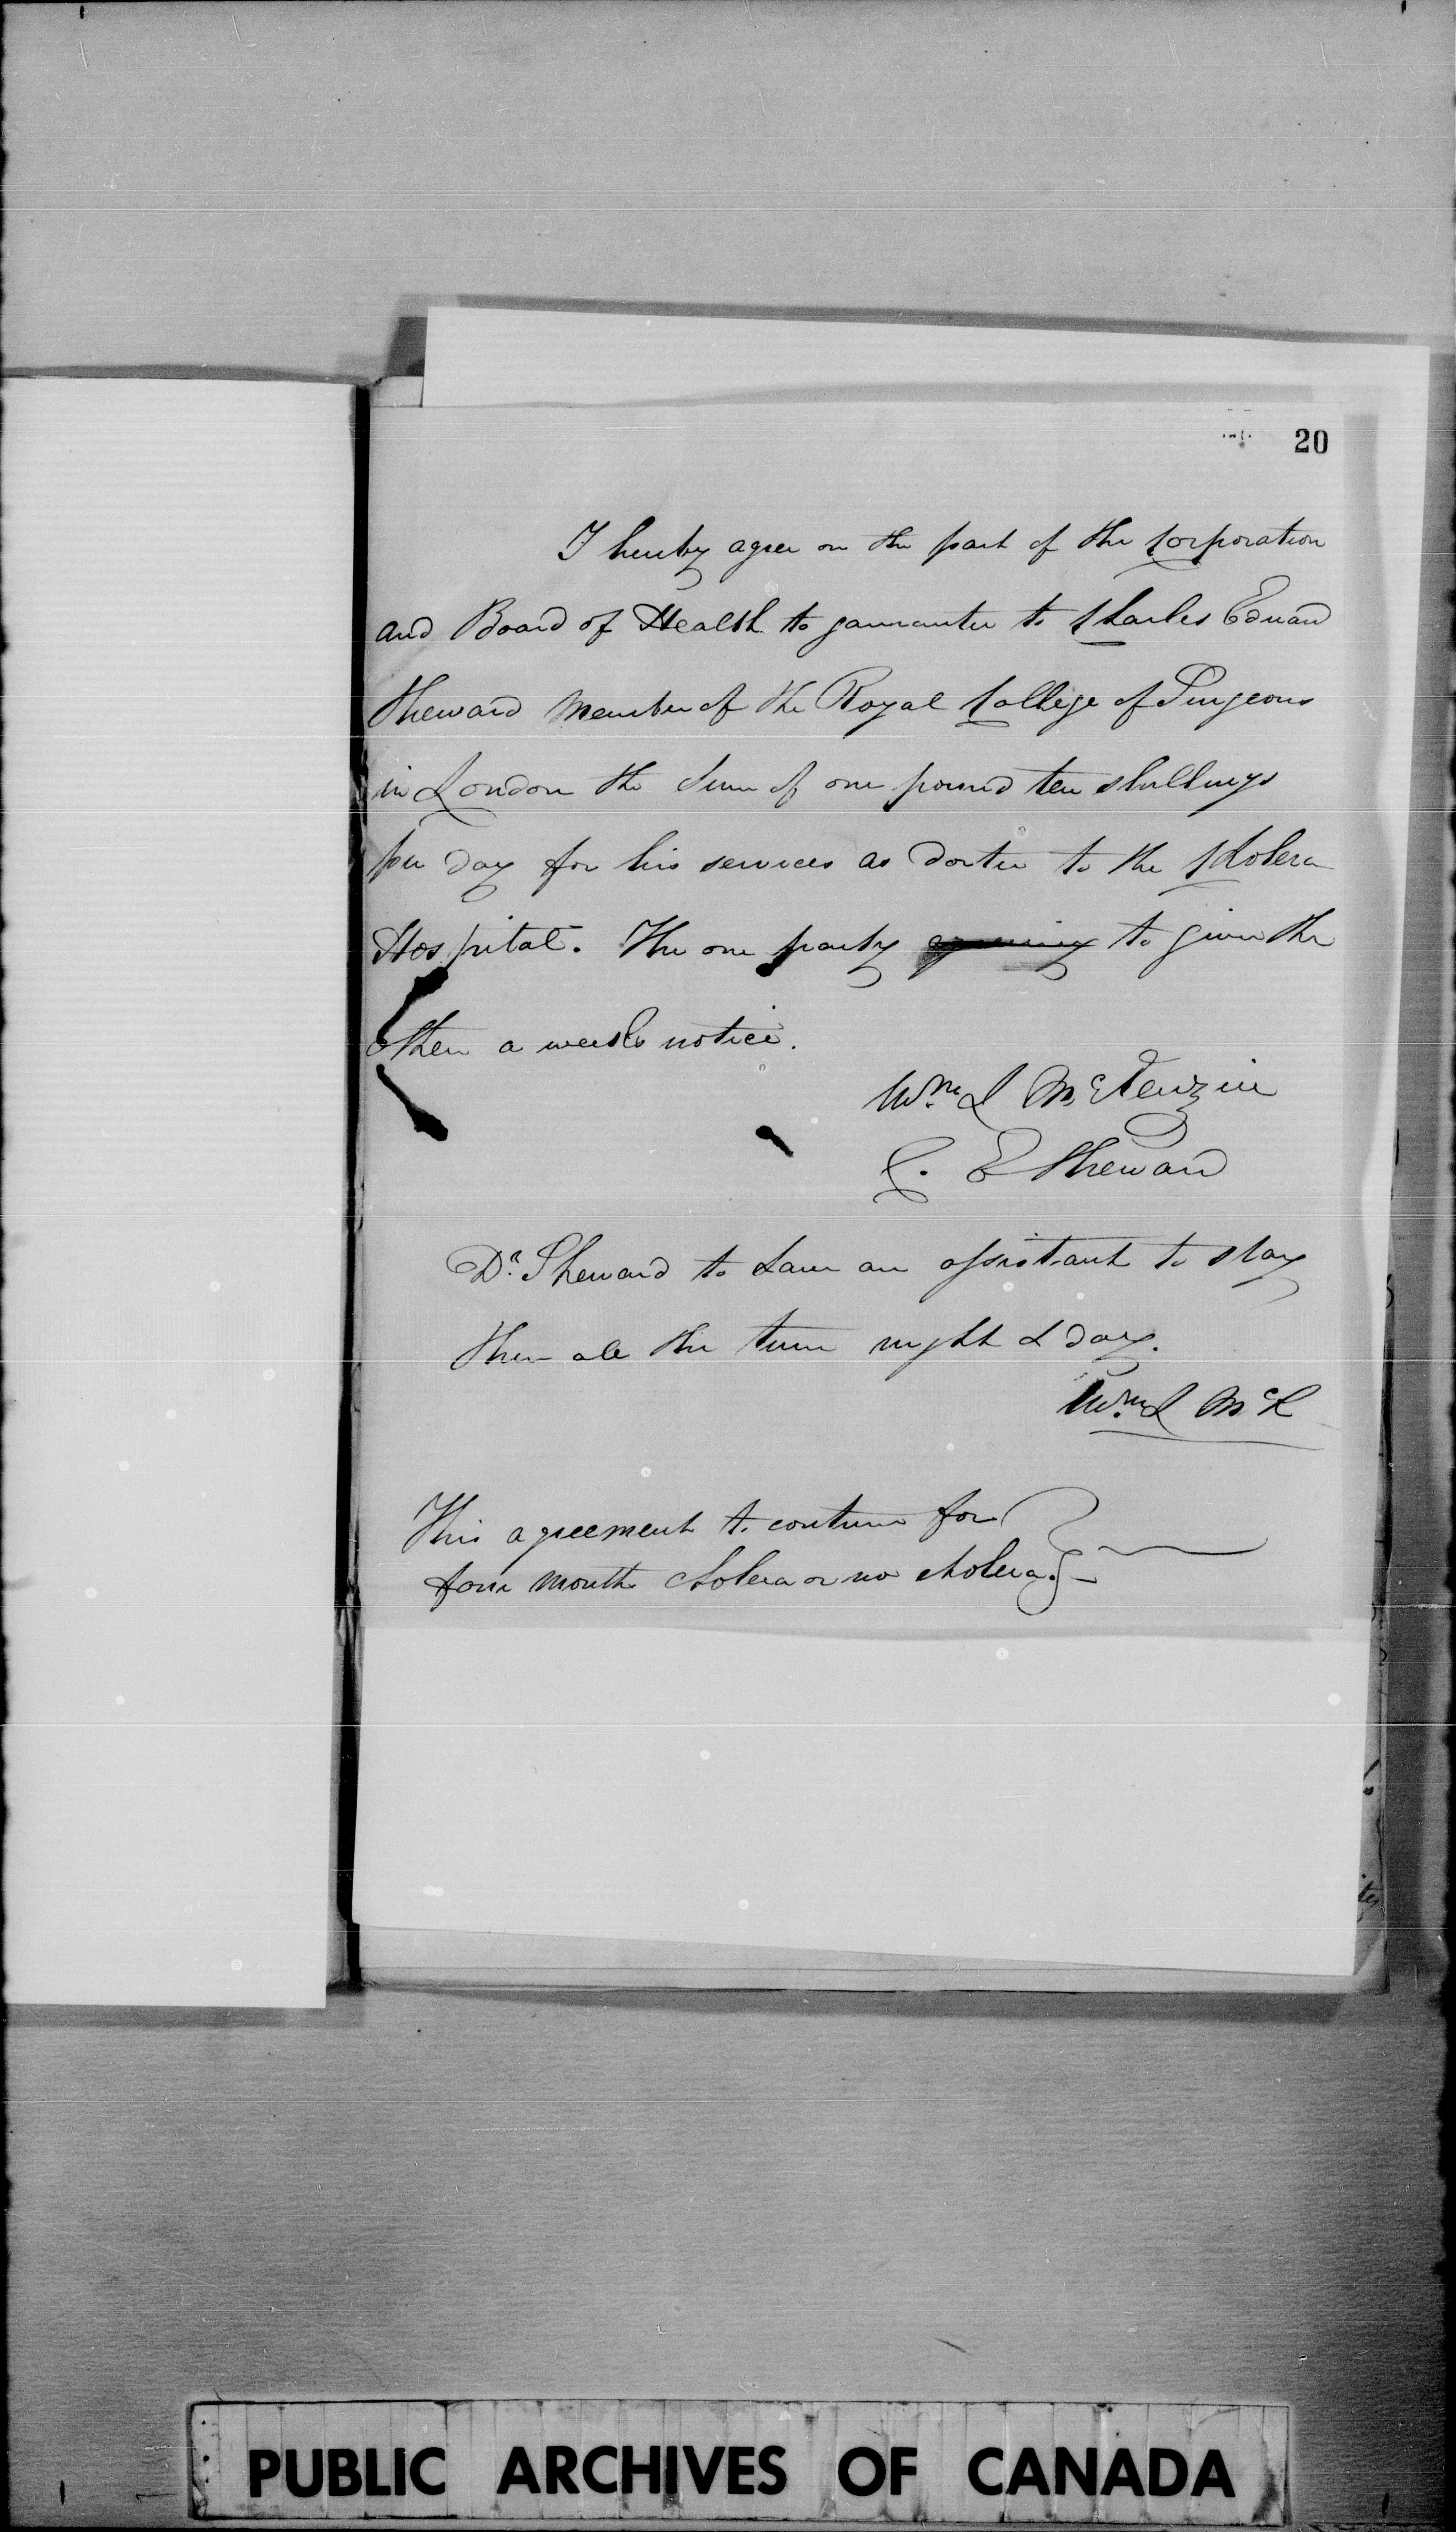 20
I hereby agree on the part of the Corporation
and Board of Health to garrantee to Charles Edward
Sheward Member of the Royal College of Surgeons
in London the Sum of one pound ten shillings
per day for his services as Doctor to the Cholera
Hospital. The one party agreeing to give the
other a weeks notice.
Wm L McKenzie
C. E Sheward
Dr. Sheward to have an assistant to stay
there all the time night & day.
Wm L McK
This agreement to continue for
four months cholera or no cholera.
PUBLIC ARCHIVES OF CANADA